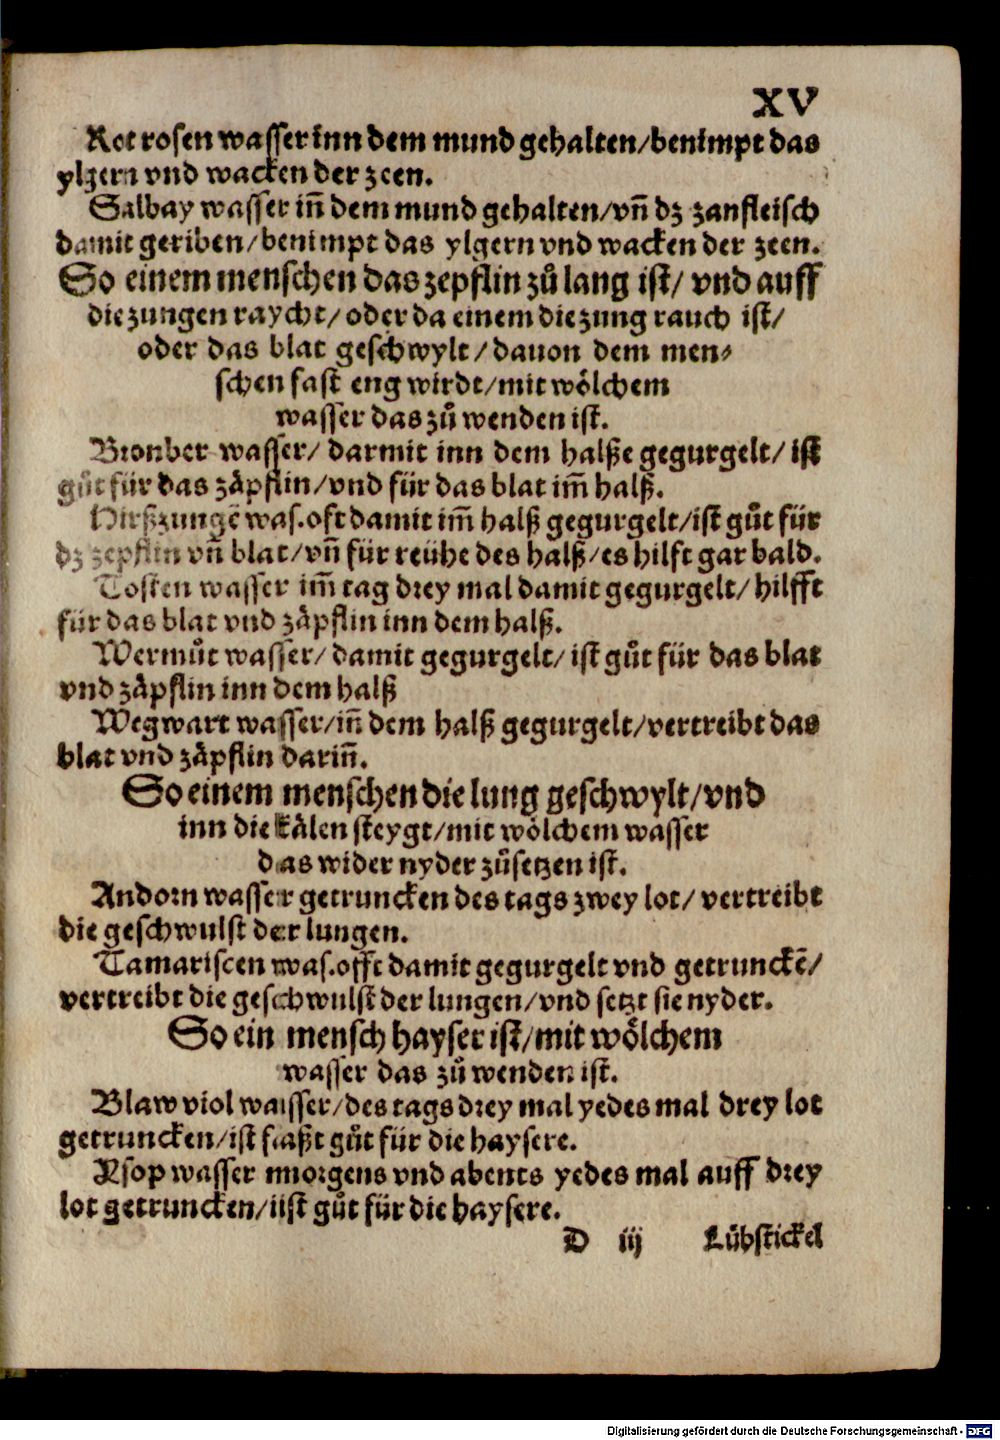 XV
Rot rosen wasser inn dem mund gehalten/benimpt das
ylgern vnd wacken der zeen.
Salbay wasser iñ dem mund gehalten/vñ dz zanfleisch
damit geriben/benimpt das ylgern vnd wacken der zeen.
So einem menschen das zepflin zů lang ist/ vnd auff
die zungen raycht/ oder da einem die zung rauch ist/
oder das blat geschwylt/dauon dem men-
schen fast eng wirdt/mit woͤlchem
wasser das zů wenden ist.
Bronber wasser/ darmit inn dem halße gegurgelt/ ist
gůt für das zaͤpflin/vnd für das blat im̃ halß.
Hirßzungẽ was.oft damit im̃ halß gegurgelt/ist gůt für
dz zepflin vñ blat/vñ für reühe des halß/es hilft gar bald.
Tosten wasser im̃ tag drey mal damit gegurgelt/ hilfft
für das blat vnd zaͤpflin inn dem halß.
Wermůt wasser/ damit gegurgelt/ ist gůt für das blat
vnd zaͤpflin inn dem halß
Wegwart wasser/iñ dem halß gegurgelt/vertreibt das
blat vnd zaͤpflin dariñ.
So einem menschen die lung geschwylt/vnd
inn die kaͤlen steygt/mit woͤlchem wasser
das wider nyder zůsetzen ist.
Andorn wasser getruncken des tags zwey lot/ vertreibt
die geschwulst der lungen.
Tamariscen was.offt damit gegurgelt vnd getrunckẽ/
vertreibt die geschwulst der lungen/vnd setzt sie nyder.
So ein mensch hayser ist/mit woͤlchem
wasser das zů wenden ist.
Blaw viol wasser/des tags drey mal yedes mal drey lot
getruncken/ist faßt gůt für die haysere.
Ysop wasser morgens vnd abents yedes mal auff drey
lot getruncken/ist gůt für die haysere.
D iij Lübstickel
Digitalisierung gefördert durch die Deutsche Forschungsgemeinschaft - DFG